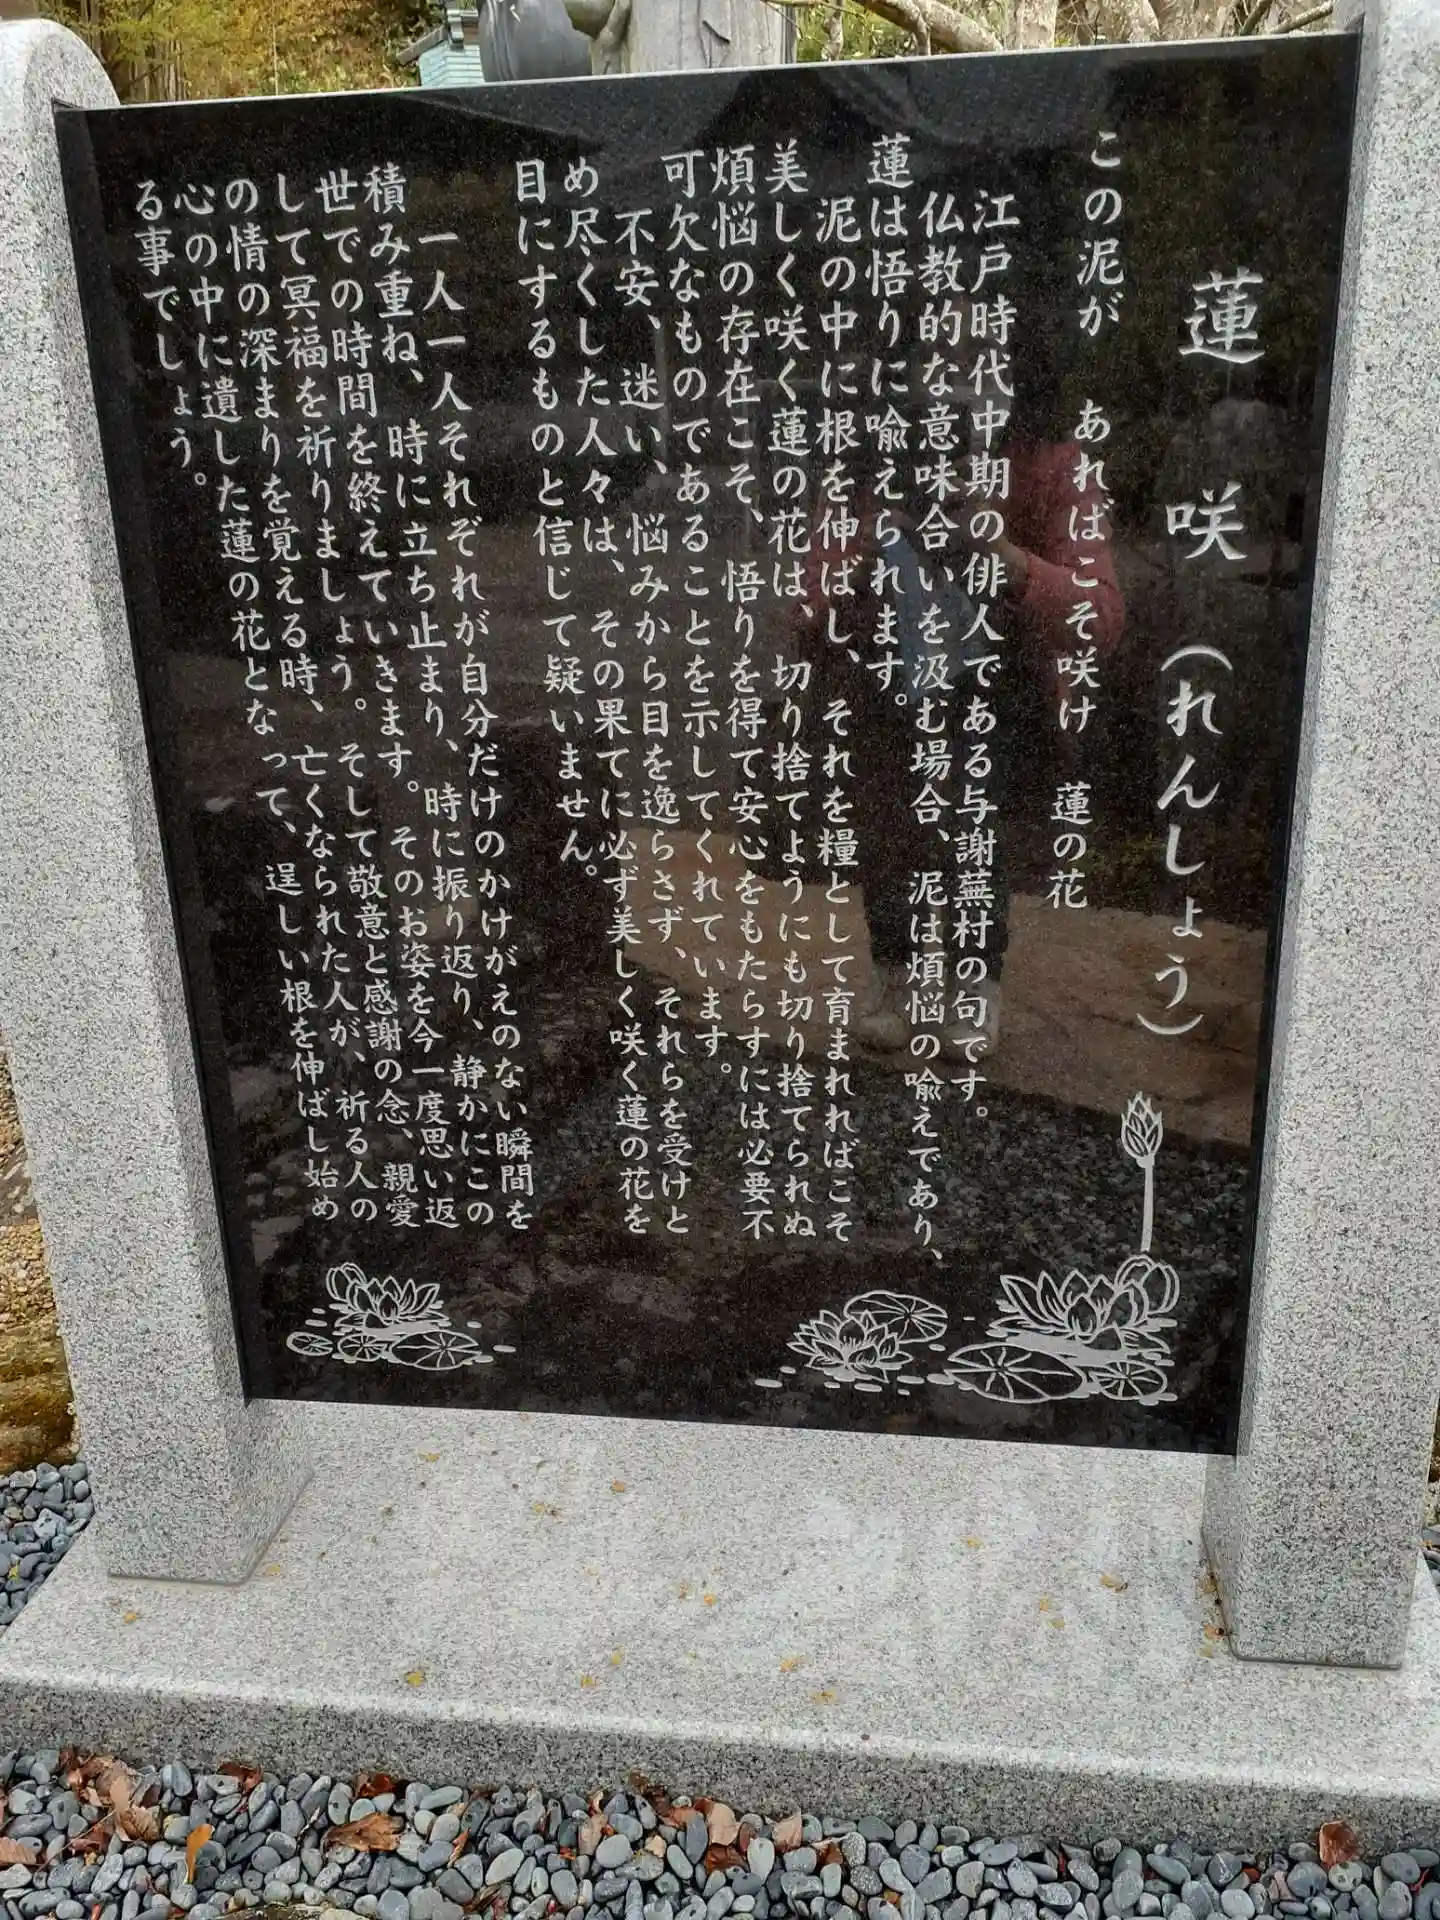 蓮 咲 （れんしょう）
この泥が あればこそ咲け 蓮の花
江戸時代中期の俳人である与謝蕪村の句です。
仏教的な意味合いを汲む場合、泥は煩悩の喩えであり、
蓮は悟りに喩えられます。
泥の中に根を伸ばし、それを糧として育まれればこそ
美しく咲く蓮の花は、切り捨てようにも切り捨てられぬ
煩悩の存在こそ、悟りを得て安心をもたらすには必要不
可欠なものであることを示してくれています。
不安、迷い、悩みから目を逸らさず、それらを受けと
め尽くした人々は、その果てに必ず美しく咲く蓮の花を
目にするものと信じて疑いません。
一人一人それぞれが自分だけのかけがえのない瞬間を
積み重ね、時に立ち止まり、時に振り返り、静かにこの
世での時間を終えていきます。そのお姿を今一度思い返
して冥福を祈りましょう。そして敬意と感謝の念、親愛
の情の深まりを覚える時、亡くなられた人が、祈る人の
心の中に遺した蓮の花となって、逞しい根を伸ばし始め
る事でしょう。